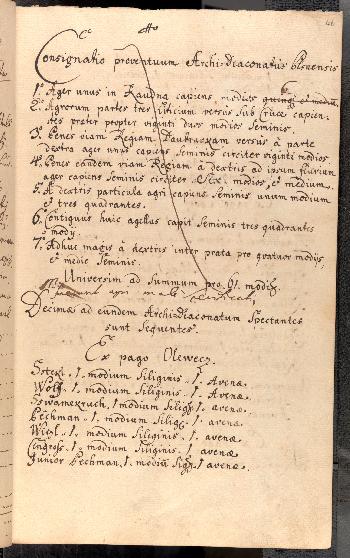 46
Consignatio proventuum Archi-Diaconatus Plznensis
1. Ager unus in Raudna capiens modios quinqz et medium.
2. Agrorum partes tres siticium versus sub Cruce capien-
tes preter propter viginti duos modios Seminis.
3. Penes viam Regiam Daubrawam versus à parte
dextra ager unus capiens Seminis circiter viginti modios
4. Penes eandem viam Regiam à dextris ad ipsum fluvium
ager capiens Seminis circiter modios, et medium.
5. A dextris particula agri capiens Seminis unum modium
et tres quadrantes.
6. Contiguus huic agellus capit Seminis tres quadrantes
modij.
7. Adhuc magis à dextris inter prata pro quatuor modijs,
et medio Seminis.
Universim ad Summum pro 61. modijs.
agri male
Decimas ad eundem Archi-Diaconatum Spectantes
sunt Sequentes.
Ex pago Olewecz.
1. modium Siliginis. 1. Avenæ.
Wolff. 1. modium Siliginis. 1. Avenæ.
1. modium Siligs. 1. avenæ.
Pechman. 1. modium Siligs. 1. avenæ.
1. modium Siliginis. 1. avenæ
1. modium Siliginis. 1. avenæ
Junior Pechman. 1. modiu Siligs. 1. avenæ.